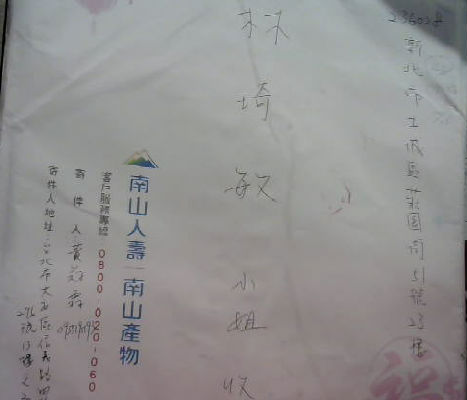 236028
新北市土城區莊園街51號23樓
林埼敏小姐收
南山人壽 南山產物
客戶服務專線:0800-020-060
寄件人:黃
寄件人地址:台北市大安區信義路四